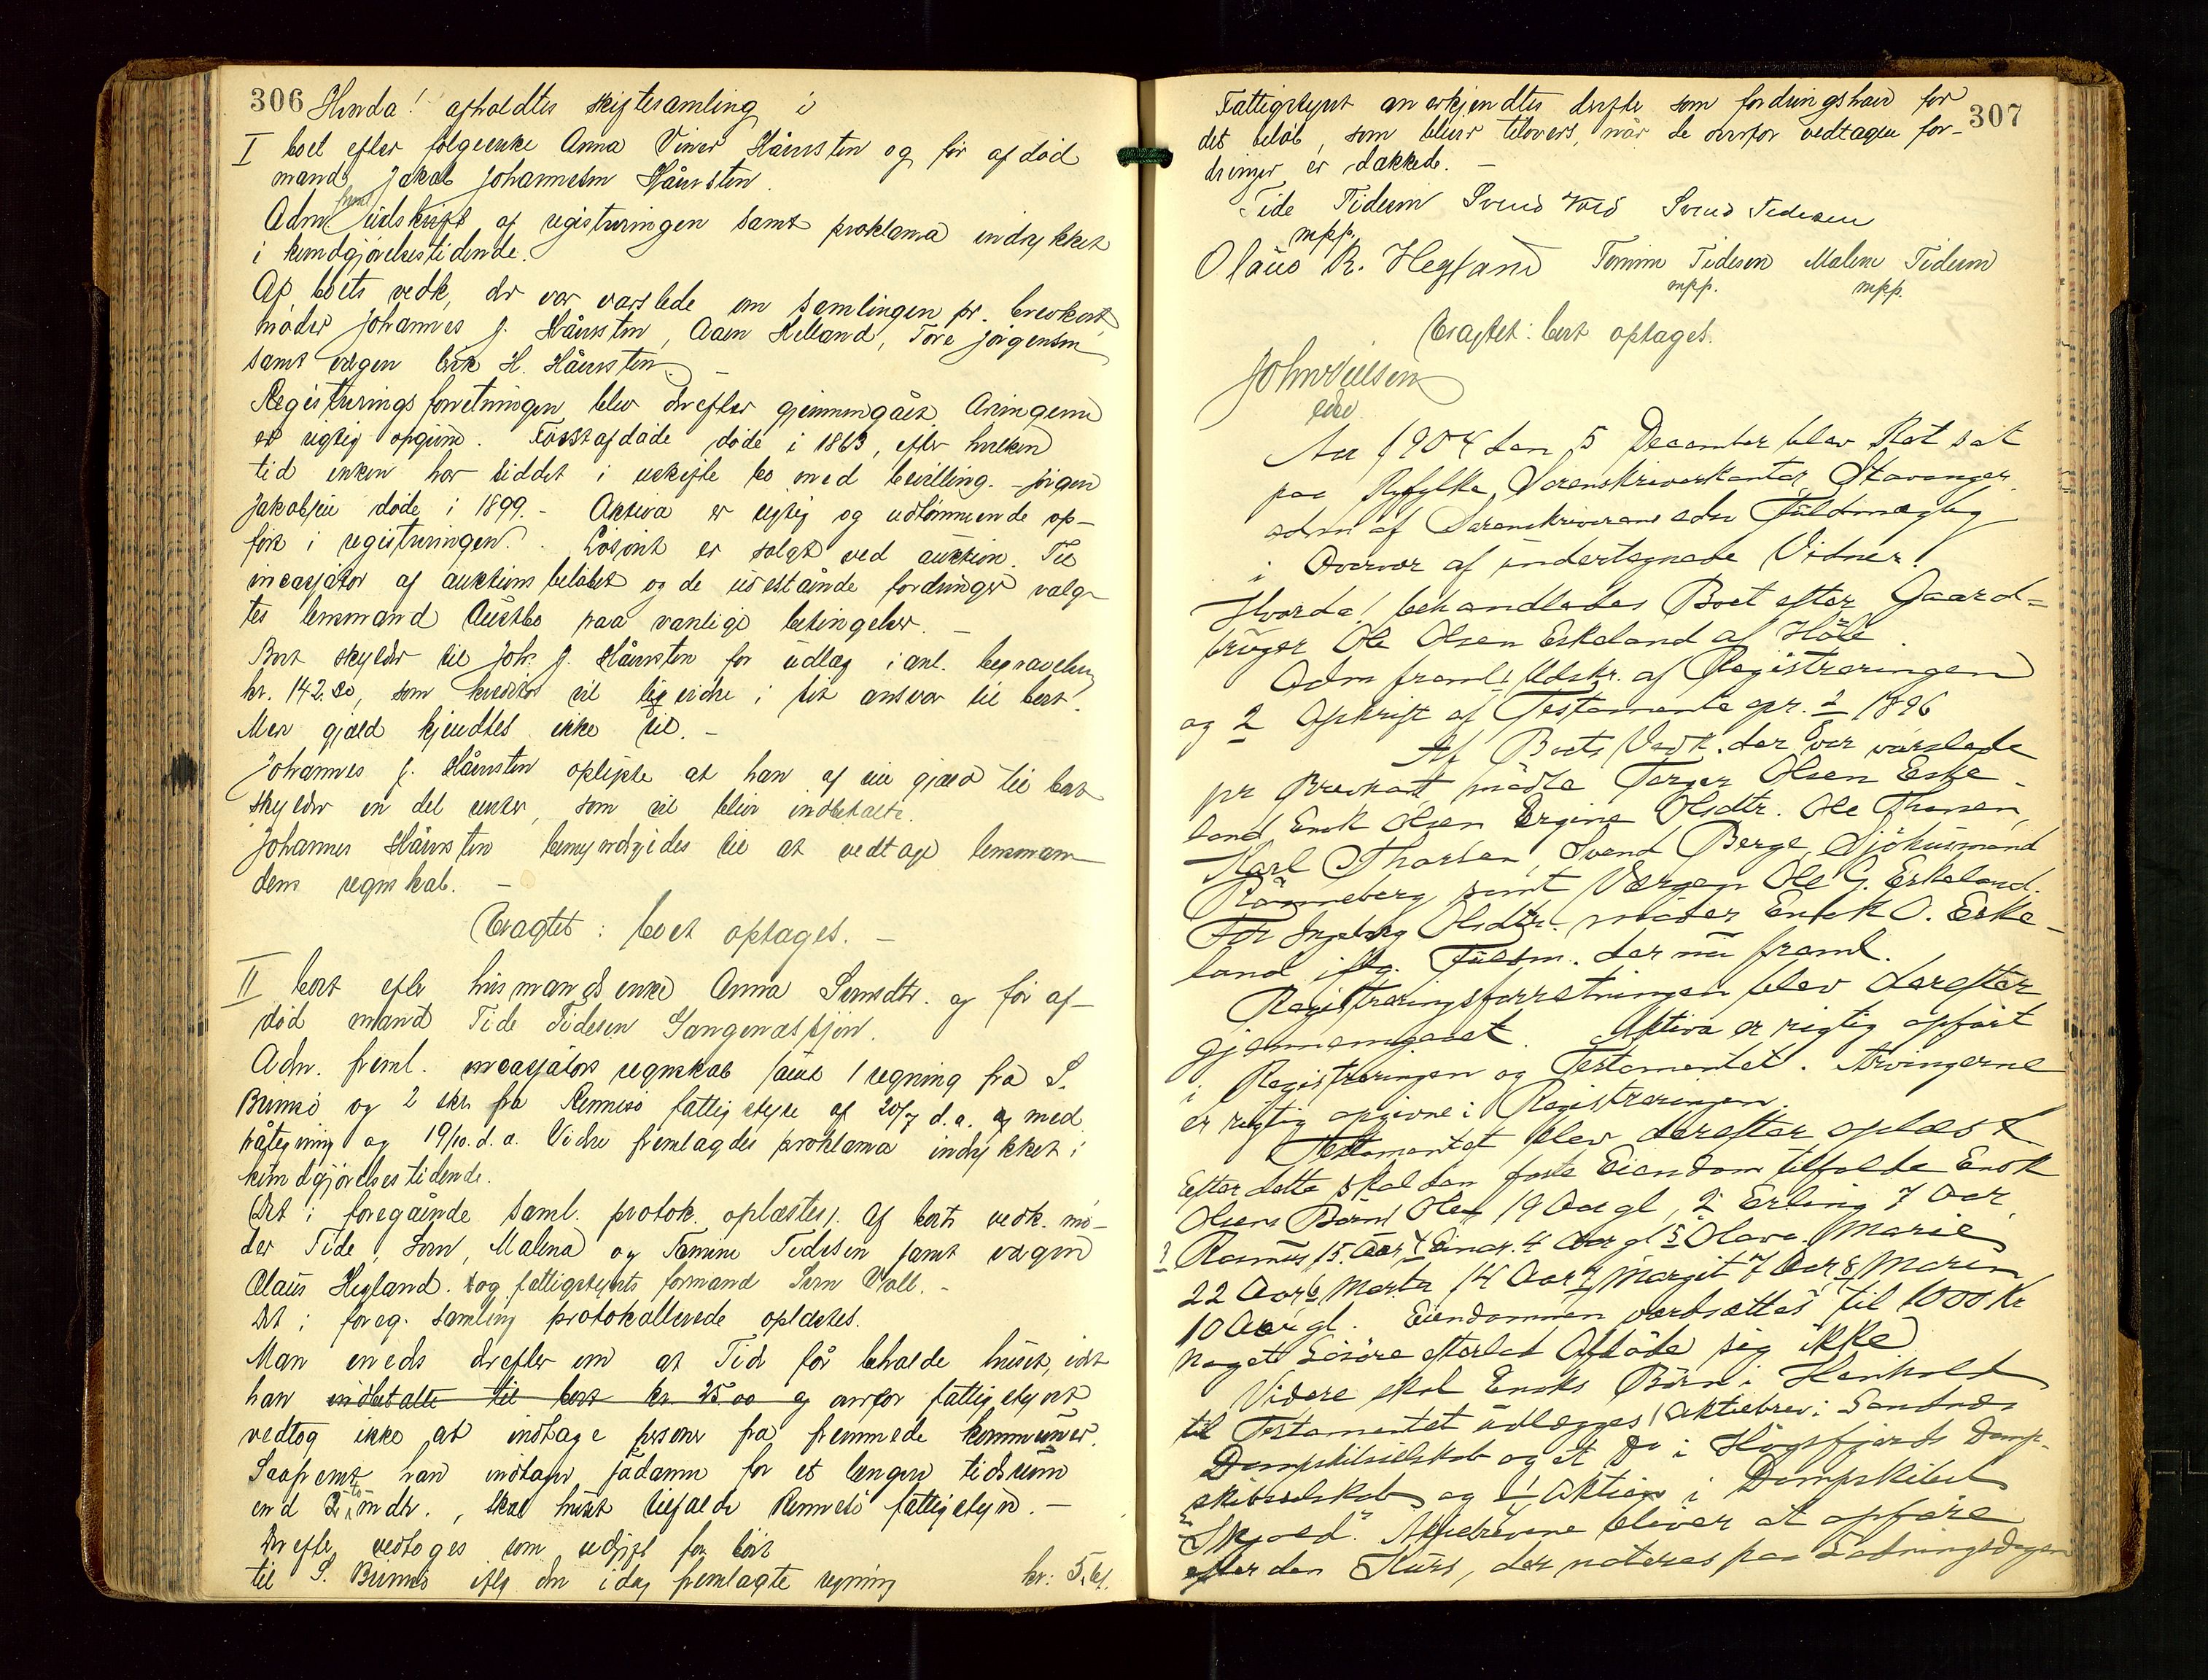 306 Hvorda! afholdtes skiftesamling i
I boet efter følgeenke Anna Håvsten og før afdød
mand Jakob Johannesen Håvsten.
Adm freml udskrift af registreringen samt proklama indrykket
i kundgjørelsestidende.
Af boets vedk, der var varslede om samlingen pr. brevkort,
møder Johannes J. Håvsten, Aaen Helland, Tore Jørgensen
samt værgen Erik H. Håvsten. —
Registreringsforretningen blev derefter gjennemgået. Arvingerne
er rigtig opgivne. Førstafdøde døde i 1863, efter hvilken
tid enken har siddet i uskifte bo med bevilling. — Jørgen
Jakobsen døde i 1899. — Aktiva er rigtig og udtømmende op-
ført i registreringen. Løsøret er solgt ved auktion. Til
incassator af auktionsbeløbet og de udestående fordringer valg-
tes lensmand Austbø paa vanlige betingelser. —
Boet skylder til Joh. J. Håvsten for udlæg i anl. begravelsen
kr. 142.80, som kreditor vil liqvidere i sit ansvar til boet.
Mer gjæld kjendtes ikke til. —
Johannes J. Håvsten oplyste at han af sin gjæld til boet
skylder en del renter, som vil bliv indbetalt.
Johannes Håvsten bemyndigedes til at vedtage lensman-
dens regnskab. —
Eragtet: boet optages. —
II boet efter husmandsenke Anna Svensdtr. og før af-
død mand Tide Tidesen
Adm. freml. incassators regnskab samt 1 regning fra S.
Bimsø og 2 skr. fra Rennesø fattigstyre af 20/7 d.a. og med
påtegning og 19/10. d.a. Videre fremlagdes proklama indrykket i
kundgjørelsestidende.
Det i foregående saml. protok. oplæstes. Af boets vedk. mø-
der Tide, Sven, Malena og Tomine Tidesen samt værgen
Olaus Hegland. og fattigstyrets formand Sven Voll. —
Det i foreg. samling protokollerede oplæstes.
Man eneds derefter om at Tide får beholde huset, idet
han indbetalte til boet kr. 25.00 og overfor fattigstyret
vedtog ikke at indtage personer fra fremmede kommuner.
Saafremt han indtager sådanne for et længere tidsrum
end 2 to mdr., skal huset tilfalde Rennesø fattigstyre. —
Derefter vedtoges som udgift for boet
til S. Bimsø iflg den idag fremlagte regning kr: 5.61.
307
Fattigstyret anerkjendtes derefter som fordringshaver for
det beløb, som bliver tilovers, når de ovenfor vedtagne for-
dringer er dækkede. —
Tide Tidesen Svend Vold Svend Tidesen
mpp.
Olaus R. Hegland Tomine Tidesen Malene Tidesen
mpp. mpp.
Eragtet: boet optages.
John Nielsen
edv.
Aar 1904 den 5 December blev Ret sat
paa Ryfylke Sorenskriverkontor, Stavanger
adm af Sorenskriverens edsv Fuldmægtig
i Overvær af undertegnede Vidner.
Hvorda! behandledes Boet efter Gaard-
bruger Ole Olsen Eskeland af Høle.
Adm freml. 1 Udskr. af Registreringen
og 2 Afskrift af Testamente apr. 1896
Af Boets Vedk. der var varslede
pr Brevkort mødte Torger Olsen Eske-
land, Enok Olsen Ergine Olsdtr. Ole Thorsen,
Karl Thorsen, Svend Berge, Sjøhusmand
Rønneberg samt Værgen Ole G. Eskeland.
For Ingeborg Olsdtr. møder Enok O. Eske-
land iflg. Fuldm. der nu freml.
Registreringsforretningen blev derefter
gjennemgaaet. Aktiva er rigtig opført
i Registreringen og Testamentet. Arvingerne
er rigtig opgivne i Registreringen.
Testamentet blev derefter oplæst
Efter dette skal den faste Eiendom tilfalde Enok
Olsens Børn Ole 19 Aar gl, 2 Erling 7 Aar,
3 Rasmus 15 Aar, 4 Einar 4 Aar gl 5 Olava Marie
22 Aar 6 Marta 14 Aar 7 Margit 7 Aar 8 Maren
10 Aar gl. Eiendommen værdsættes til 1000 Kr
Noget Løsøre efterlod Afdøde sig ikke.
Videre skal Enoks Børn i Henhold
til Testamentet udlægges 1 Aktiebrev i Sandnes
Dampskibsselskab og et Do i Høgsfjords Damp-
skibsselskab og 1 Aktie i Dampskibet
"Skjold". Aktiebrevene bliver at opføre
efter den Kurs, der noteres paa Lodningsdagen